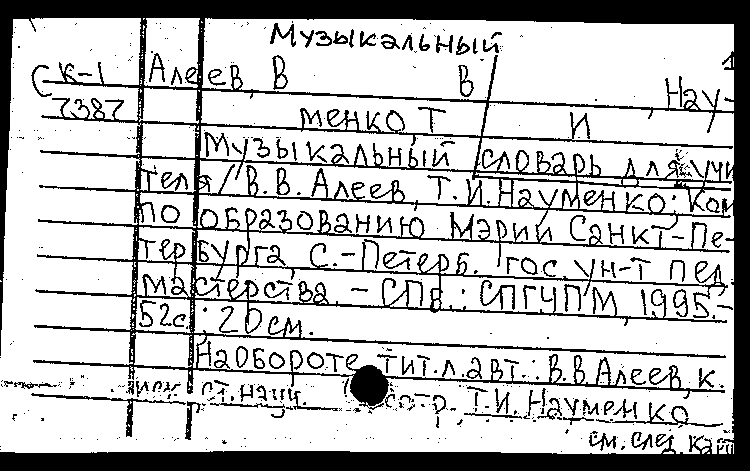 Музыкальный
1
К-1 Алеев, В В , Нау-
7387 менко, Т И
Музыкальный словарь для учи
теля / В.В. Алеев, Т.И. Науменко; Ком
по образованию Мэрии Санкт-Пе-
тербурга, С.-Петерб. гос. ун-т пед.
мастерства. – СПб.: СПГУПМ, 1995.–
52с.; 20см.
На обороте тит.л. авт.: В.В. Алеев, к.
иск., ст. науч. сотр., Т.И. Науменко
см. след. карт